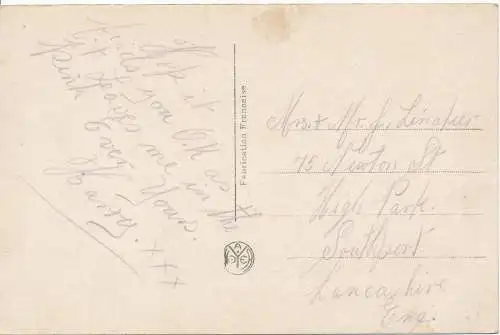 Hop it
finds you O.K as
it leaves me in the
pink
Ever Yours.
Harry. xxx
Fabrication Française
Mrs & Mr J. Linaker
75 Newton St
High Park.
Southport
Lancashire
Eng.